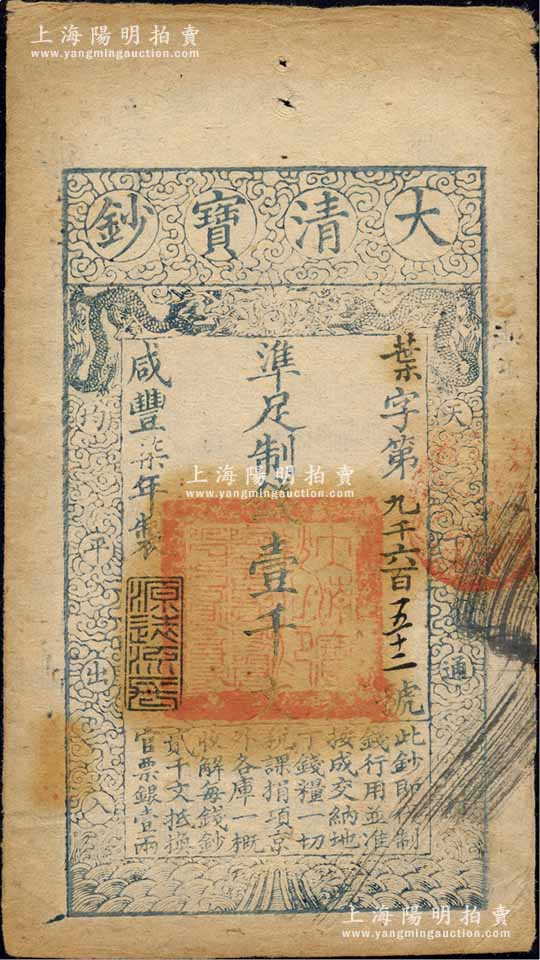 上海陽明拍賣
www.yangmingauction.com
大清寶鈔
天
通
行
均
平
出
入
葉字第九千六百五十二號
準足制錢壹千文
咸豐柒年製
源遠流長
上海陽明拍賣
www.yangmingauction.com
此鈔即代制
錢行用並准
按成交納地
丁錢糧一切
稅課捐項京
外各庫一概
收解每錢鈔
貳千文抵換
官票銀壹兩
上海陽明拍賣
www.yangmingauction.com